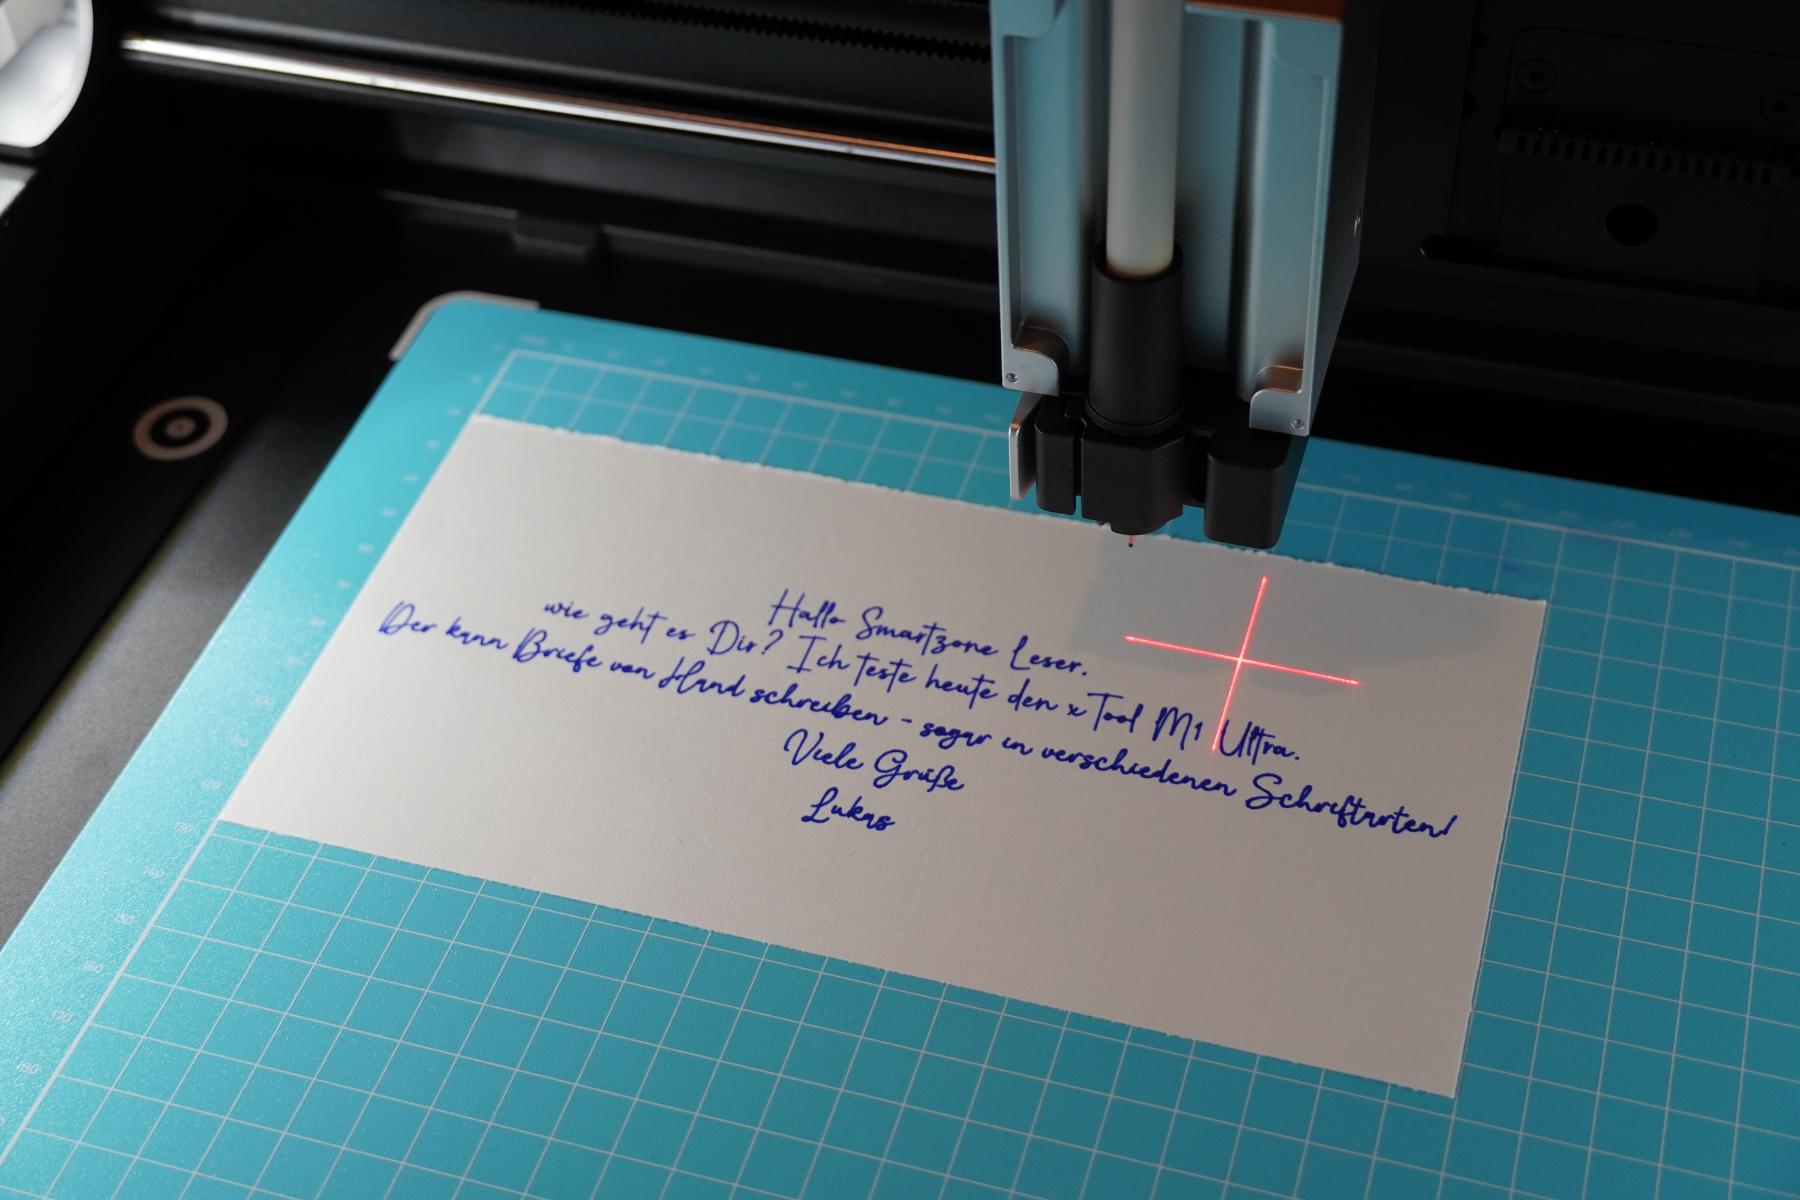 Hallo Smartzone Leser.
wie geht es Dir? Ich teste heute den xTool M1 Ultra.
Der kann Briefe von Hand schreiben - sogar in verschiedenen Schriftarten!
Viele Grüße
Lukas